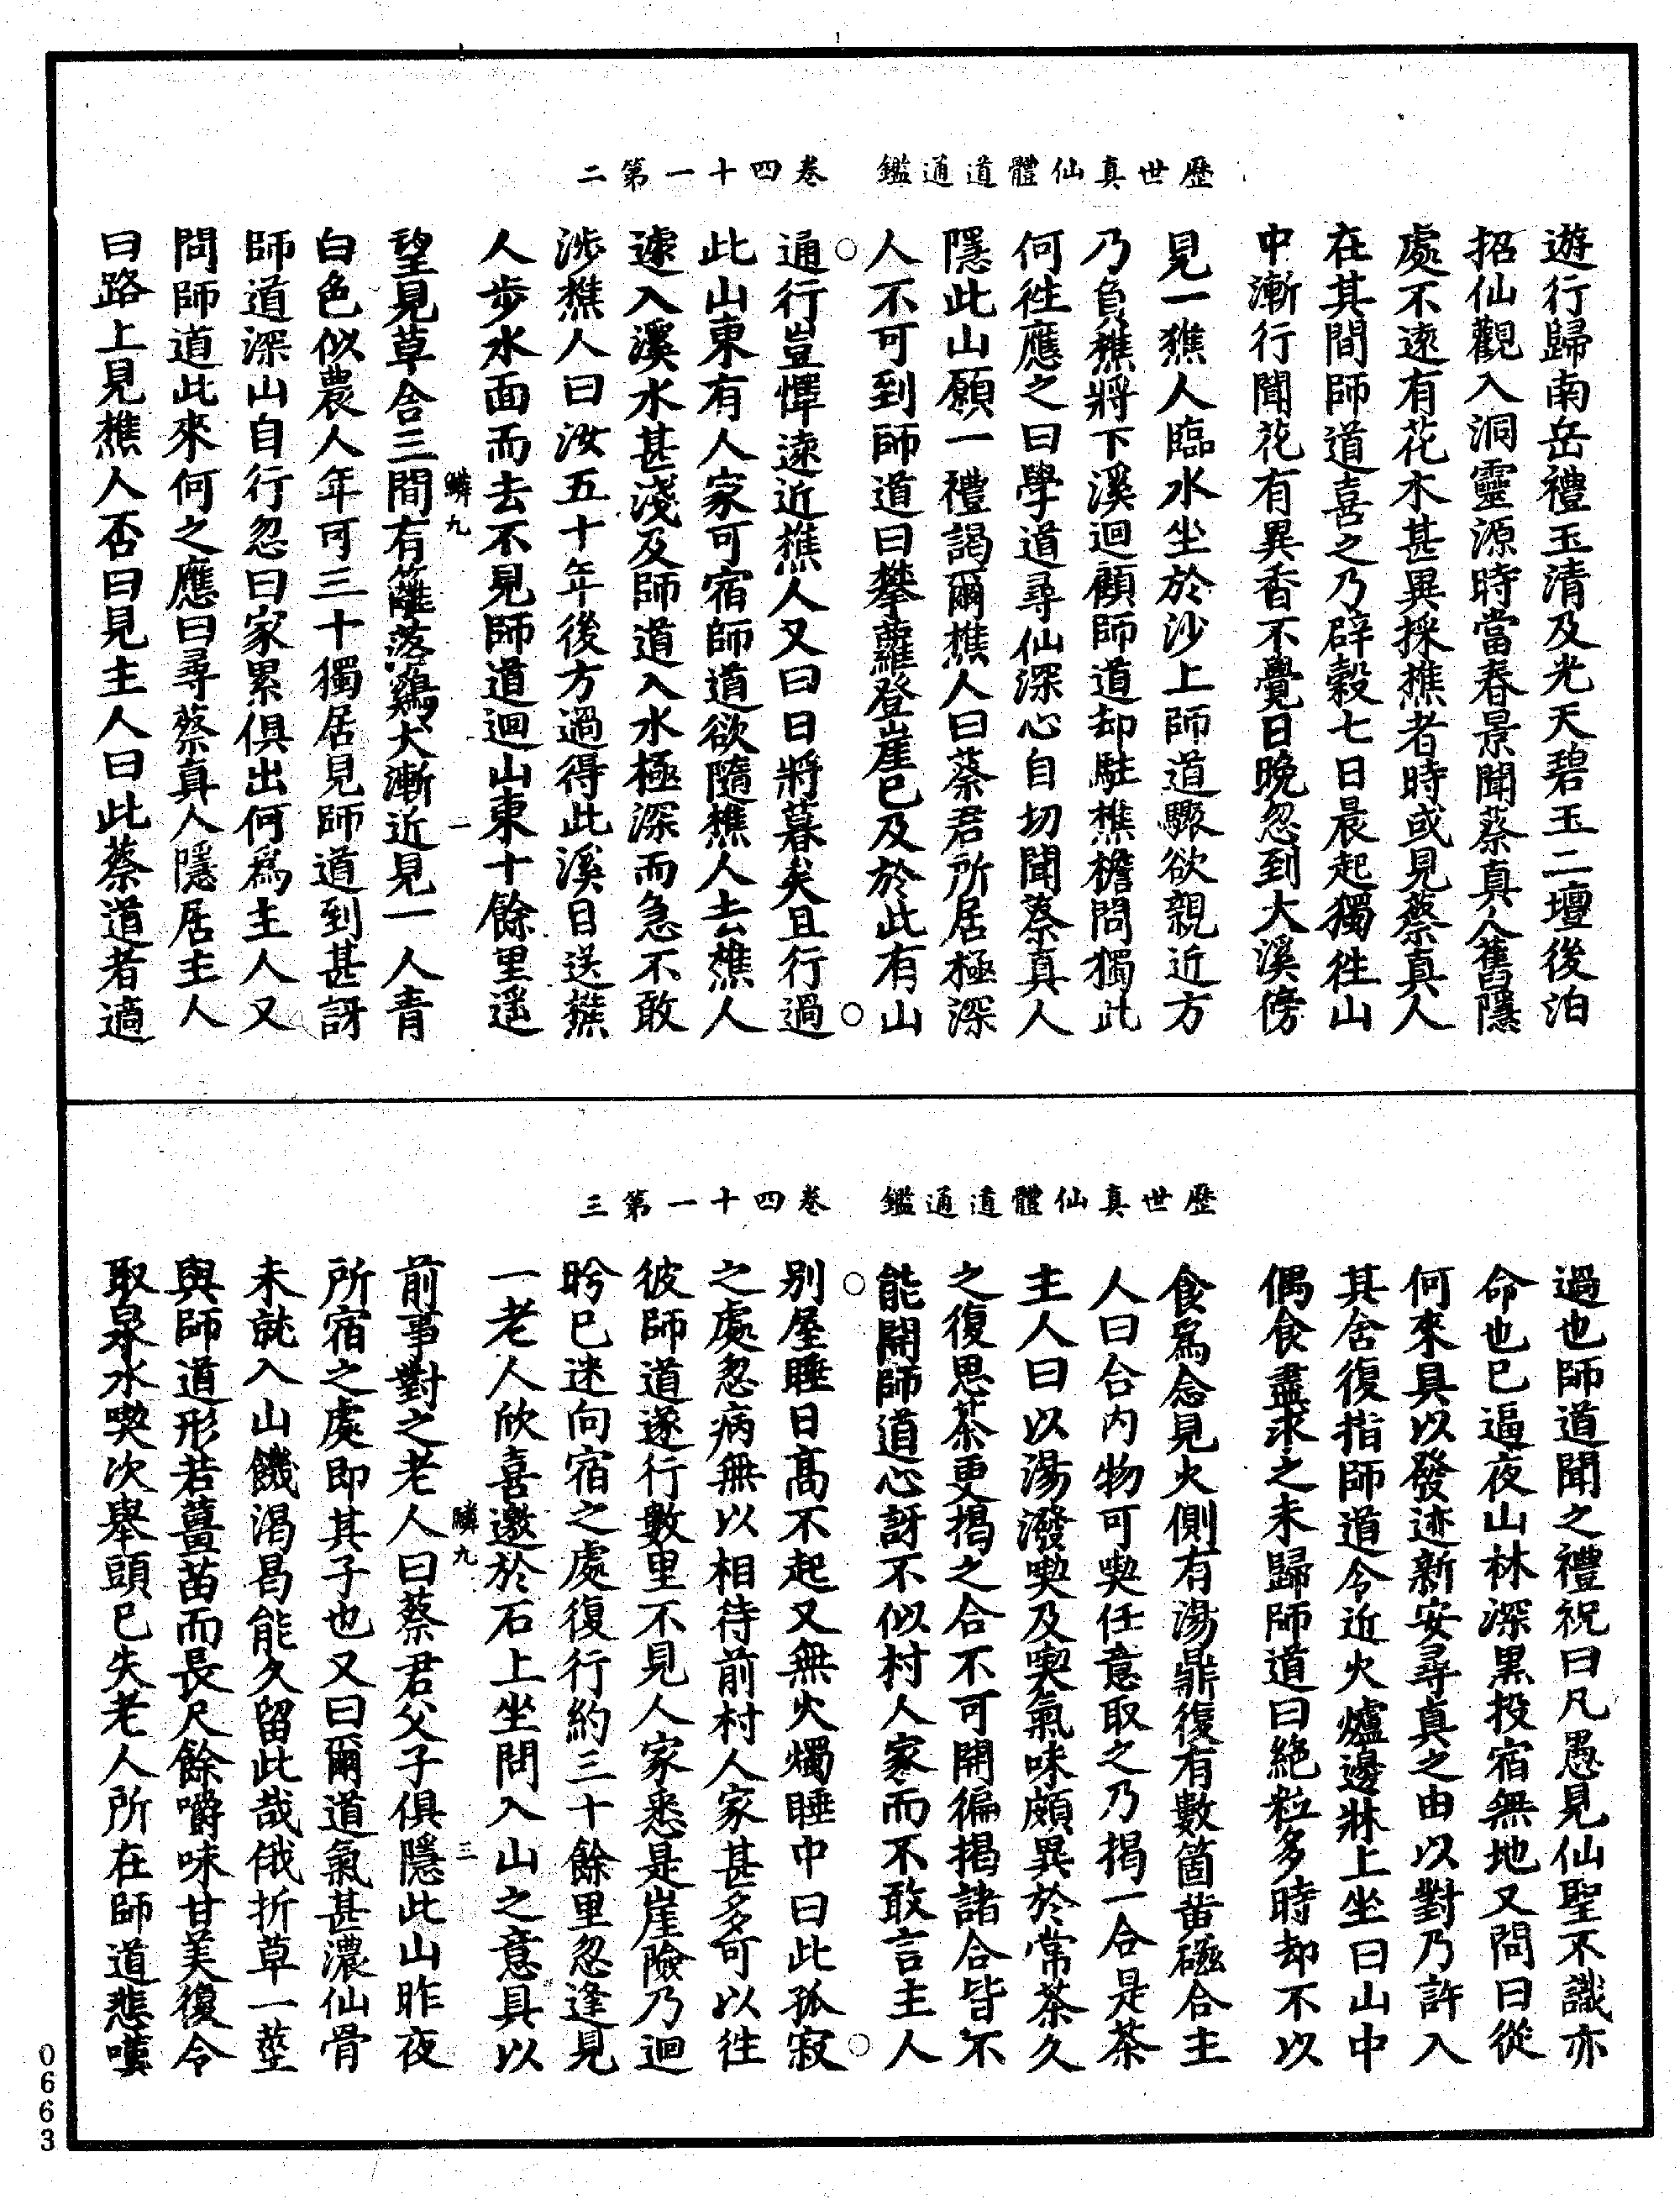 歷世真仙體道通鑑　卷四十一第二
遊行歸南岳禮玉清及光天碧玉二壇後泊
招仙觀入洞靈源時當春景聞蔡真人舊隱
處不遠有花木甚異採樵者時或見蔡真人
在其間師道喜之乃辟穀七日晨起獨徃山
中漸行聞花有異香不覺日晚忽到大溪傍
見一樵人臨水坐於沙上師道驟欲親近方
乃負樵將下溪迴顧師道却駐樵檐問獨此
何徃應之曰學道尋仙深心自切聞蔡真人
隱此山願一禮謁爾樵人曰蔡君所居極深
人不可到師道曰攀蘿登崖已及於此有山
通行豈憚遠近樵人又曰日將暮矣且行過
此山東有人家可宿師道欲隨樵人去樵人
遽入溪水甚淺及師道入水極深而急不敢
涉樵人曰汝五十年後方過得此溪目送樵
人步水面而去不見師道迴山東十餘里遥
望見草舍三間有籬落鷄犬漸近見一人青
鱗九　二
白色似農人年可三十獨居見師道到甚訝
師道深山自行忽曰家累俱出何爲主人又
問師道此來何之應曰尋蔡真人隱居主人
曰路上見樵人否曰見主人曰此蔡道者適
歷世真仙體道通鑑　卷四十一第三
過也師道聞之禮祝曰凡愚見仙聖不識亦
命也已逼夜山林深黑投宿無地又問曰從
何來具以發迹新安尋真之由以對乃許入
其舍復指師道令近火爐邊牀上坐曰山中
偶食盡求之未歸師道曰絶粒多時却不以
食爲念見火側有湯鼎復有數箇黄磁合主
人曰合内物可喫任意取之乃揭一合是茶
主人曰以湯潑喫及喫氣味頗異於常茶久
之復思茶更揭之合不可開徧揭諸合皆不
能開師道心訝不似村人家而不敢言主人
别屋睡日高不起又無火燭睡中曰此孤寂
之處忽病無以相待前村人家甚多可以徃
彼師道遂行數里不見人家悉是崖險乃迴
盻已迷向宿之處復行約三十餘里忽逢見
一老人欣喜邀於石上坐問入山之意具以
前事對之老人曰蔡君父子俱隱此山昨夜
鱗九　三
所宿之處即其子也又曰爾道氣甚濃仙骨
未就入山饑渴曷能久留此哉俄折草一莖
與師道形若薑苗而長尺餘嚼味甘美復令
取泉水喫次舉頭已失老人所在師道悲嘆
0663